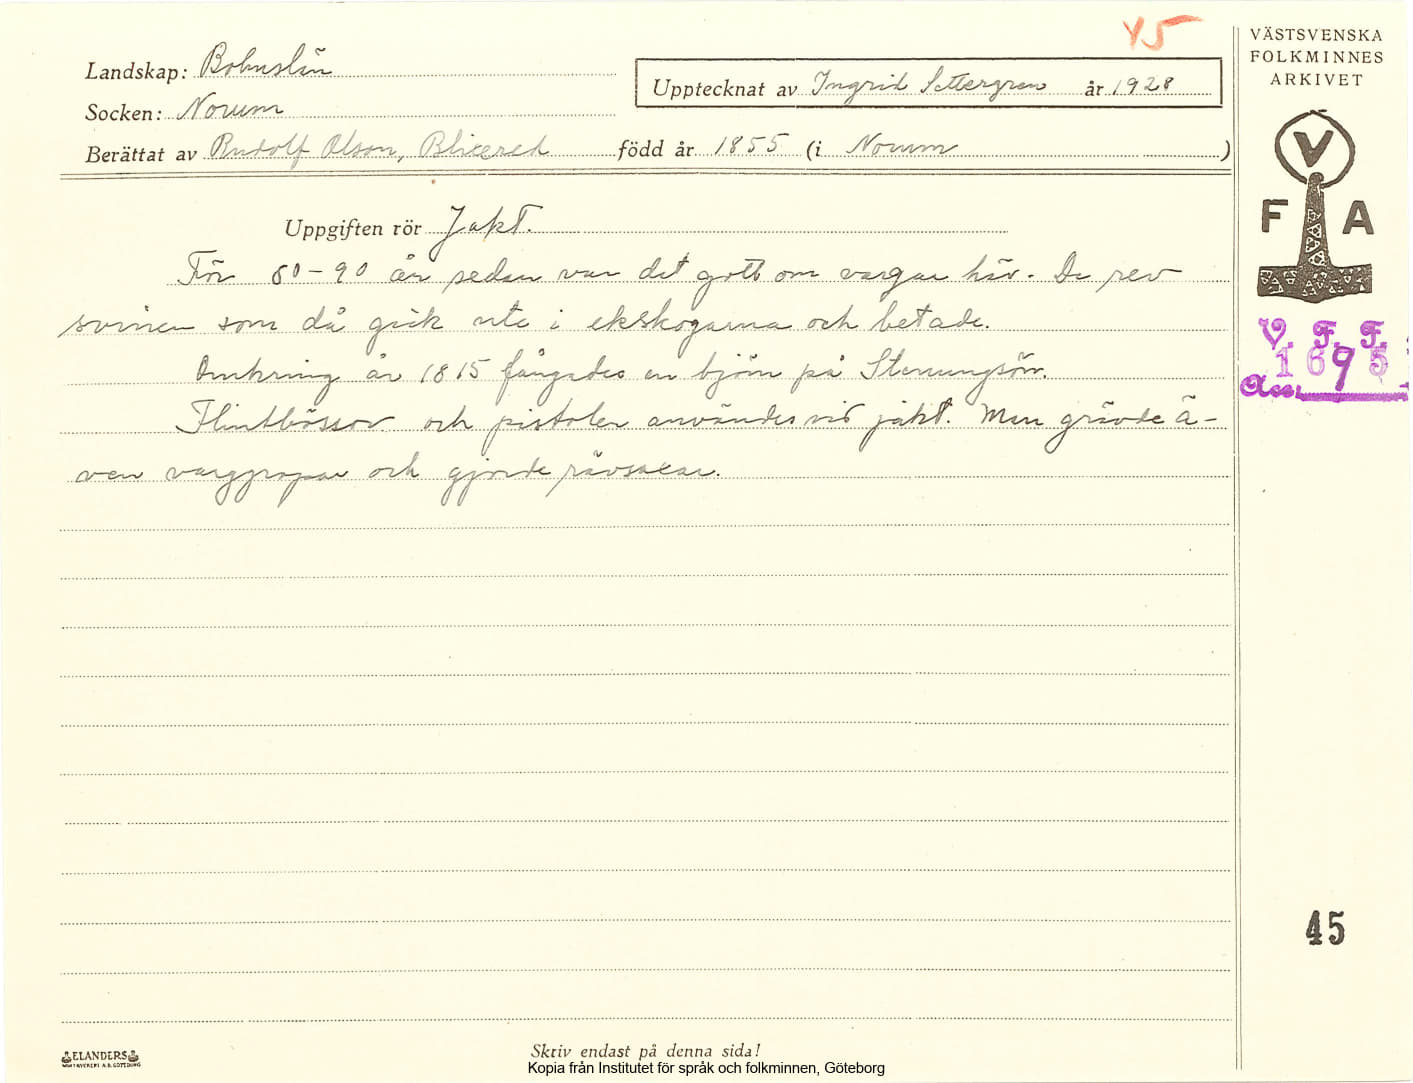 45
VÄSTSVENSKA
FOLKMINNES
ARKIVET
Landskap: Bohuslän
Upptecknat av Ingrid Settergren år 1928
Socken: Norum
Berättat av Rudolf Olson, Blixered född år 1855 (i Norum)
V
F A
Uppgiften rör Jakt.
För 80-90 år sedan var det gott om vargar här. De rev
svinen som då gick ute i ekskogarna och betade.
Omkring år 1815 fångades en björn på Stenungsön.
Flintbössor och pistoler användes vid jakt. Man grävde ä-
ven varggropar och gjorde rävsaxar.
V. F. F.
1695
45
ELANDERS
Skriv endast på denna sida!
Kopia från Institutet för språk och folkminnen, Göteborg